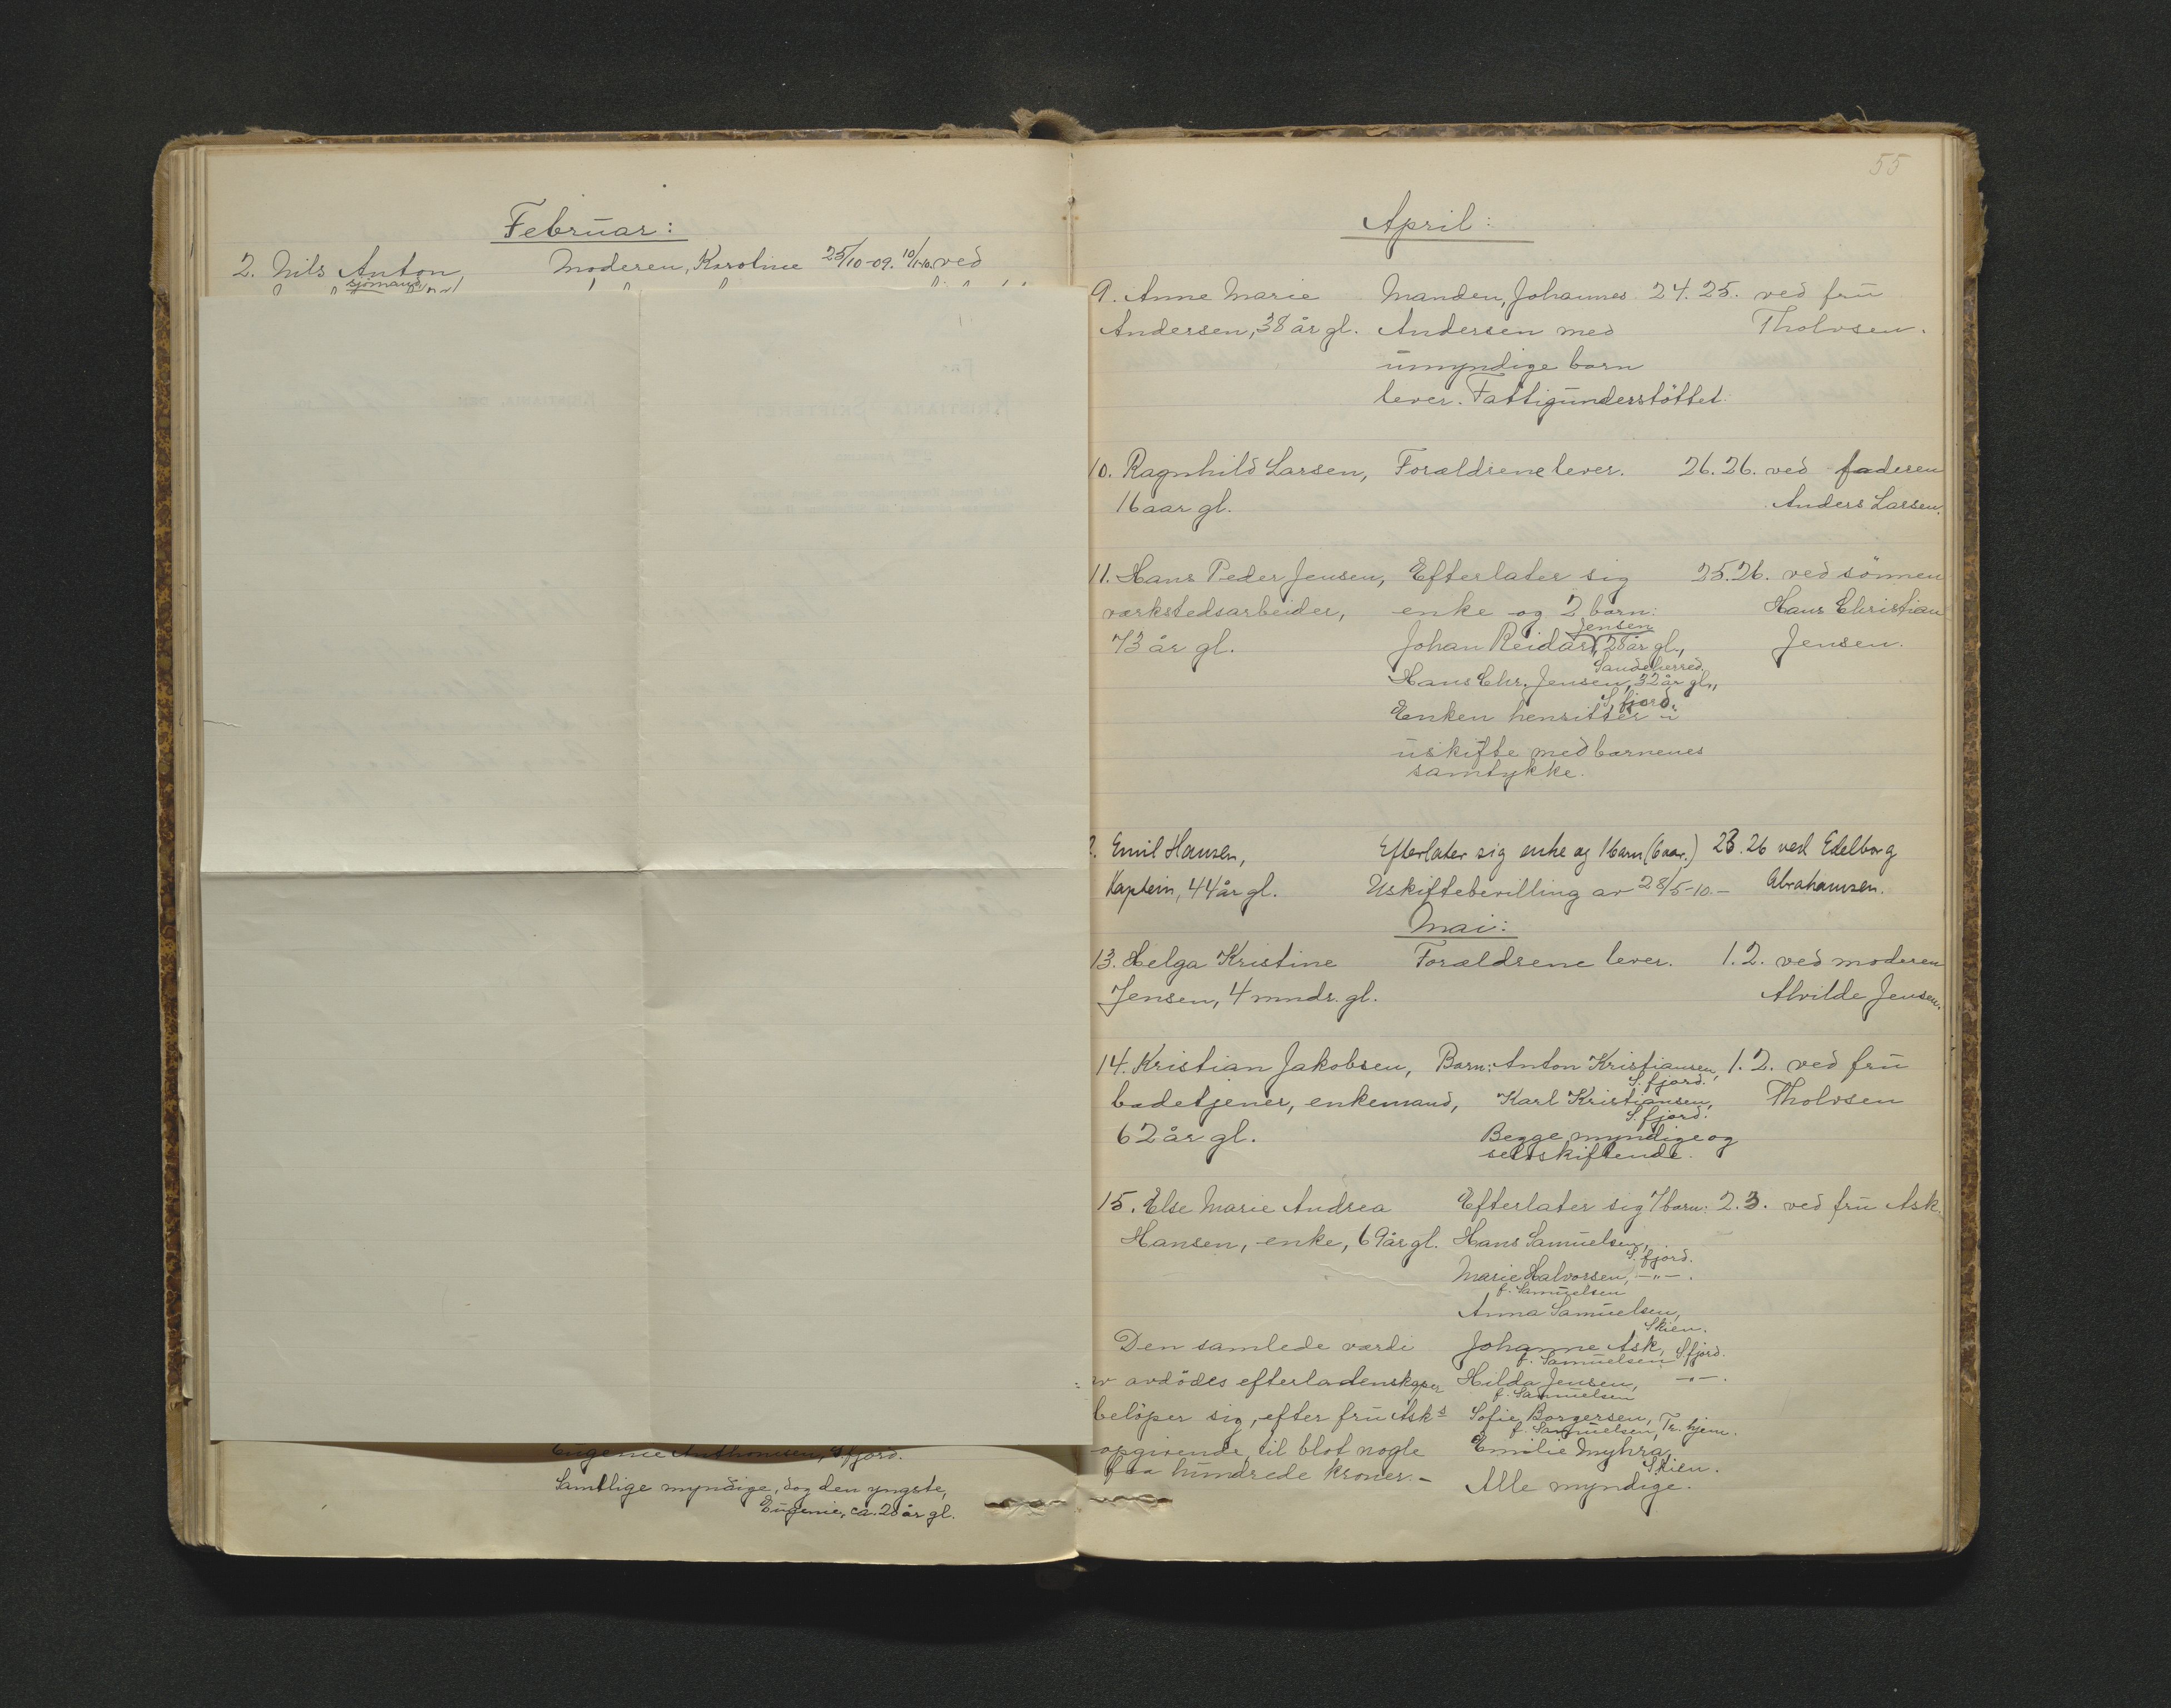 Februar:
2. Nils Anton, Moderen, Karoline 25/10-09. 10/1-10. ved
sjömand
Eugenie Anthonisen, S.fjord.
Samtlige myndige, dog den yngste,
Eugenie, ca. 28 år gl.
55
April:
9. Anne Marie Manden, Johannes 24. 25. ved frū
Andersen, 38 år gl. Andersen med Tholvsen.
umyndige barn
lever. Fattigūnderstöttet.
10. Ragnhild Larsen, Forældrene lever. 26. 26. ved faderen
16 aar gl. Anders Larsen.
11. Hans Peder Jensen, Efterlater sig 25. 26. ved sönnen
værkstedsarbeider, enke og 2 barn: Hans Christian
Jensen
73 år gl. Johan Reidar, 28 år gl., Jensen.
Sandeherred.
Hans Chr. Jensen, 32 år gl.,
S.fjord.
Enken hensitter i
ūskifte med barnenes
samtykke.
2. Emil Hansen, Efterlater sig enke og 1 barn (6 aar.) 23. 26 ved Edelborg
Kaptein, 44 år gl. Uskiftebevilling av 28/5-10.- Abrahamsen.
Mai:
13. Helga Kristine Forældrene lever. 1. 2. ved moderen
Jensen, 4 mndr. gl. Alvilde Jensen.
14. Kristian Jakobsen, Barn: Anton Kristiansen, 1. 2. ved frū
S.fjord.
badetjener, enkemand, Karl Kristiansen, Tholvsen
S.fjord.
62 år gl. Begge myndige og
selvskiftende.
15. Else Marie Andrea Efterlater sig 7 barn: 2. 3. ved frū Ask.
Hansen, enke, 69 år gl. Hans Samūelsen,
S.fjord.
Marie Halvorsen, -"-.
f. Samūelsen
Anna Samūelsen,
Skien.
Den samlede værdi Johanne Ask, S.fjord.
f. Samūelsen
av avdödes efterladenskaper Hilda Jensen, -"-.
f. Samūelsen
belöper sig, efter frū Asks Sofie Borgersen, Tr.hjem.
f. Samūelsen,
opgivende, til blot nogle Emilie Myhra,
Skien.
faa hundrede kroner.- Alle myndige.